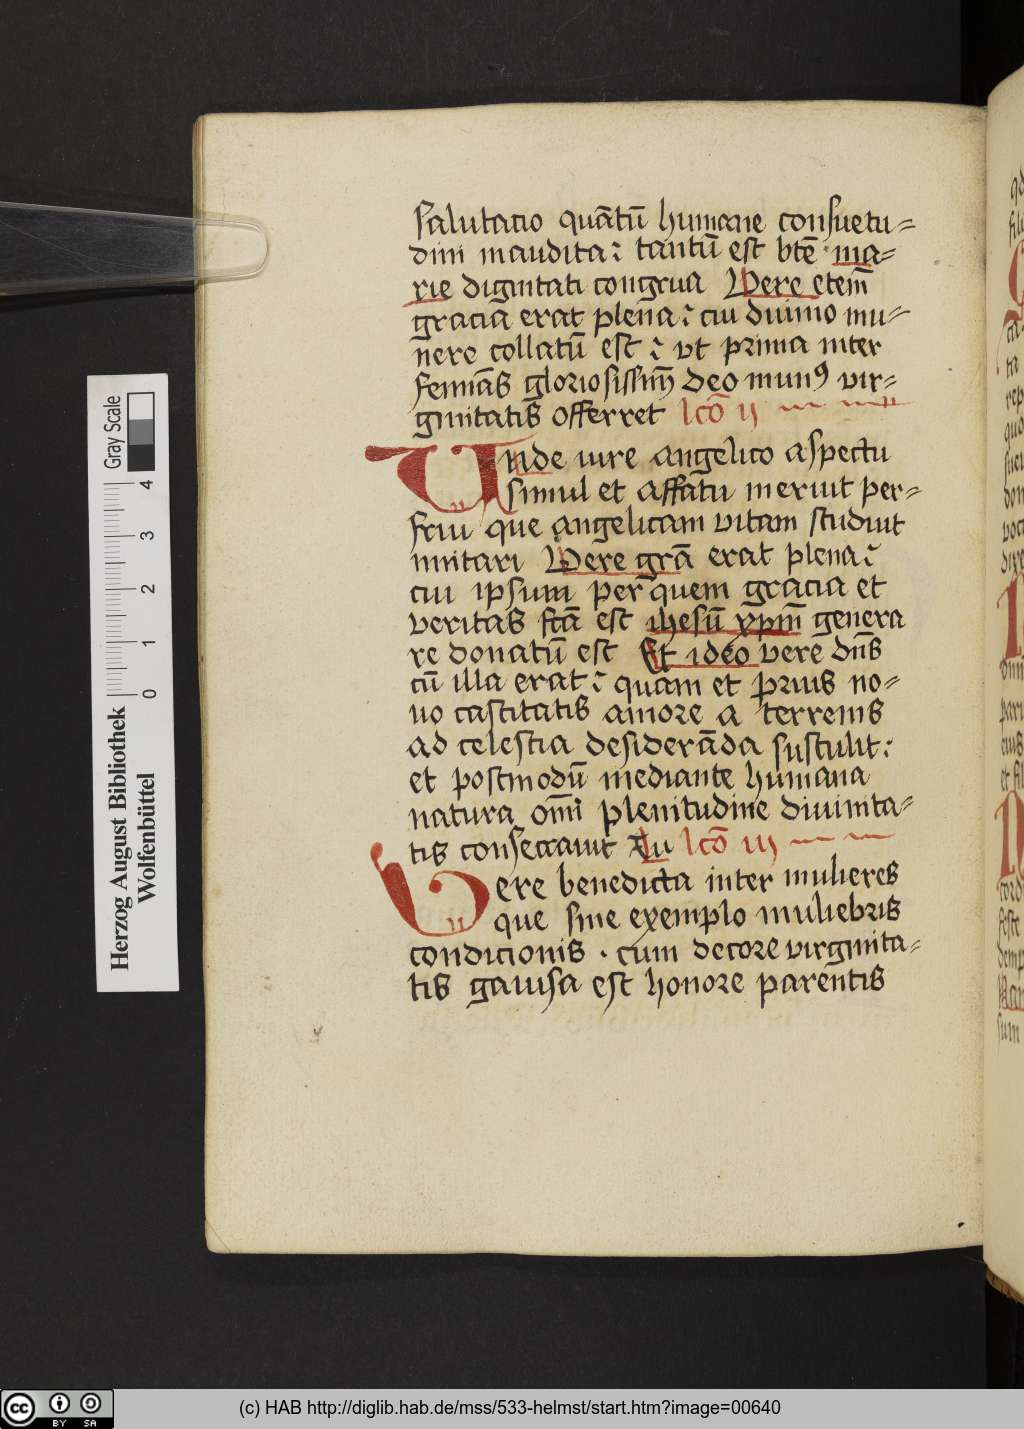 salutacio quātū humane consuetu=
dini inaudita: tantū est btē ma=
rie dignitati congrua Vere etem̄
gracia erat plena: cui diuino mu=
nere collatū est : ut prima inter
feminas gloriosissim̄ deo munꝰ vir=
ginitatis offerret lcō ij
Unde iure angelico aspectu
simul et affatu meruit per=
frui que angelicam vitam studuit
imitari Vere grā erat plena:
cui ipsum per quem gracia et
veritas fcā est ihesū xpm̄ genera
re donatū est Et ideo vere dn̄s
cū illa erat: quam et prius no=
uo castitatis amore a terrenis
ad celestia desiderāda sustulit:
et postmodū mediante humana
natura om̄i plenitudine diuinita=
tis consecrauit Tu lcō iij
Vere benedicta inter mulieres
que sine exemplo muliebris
condicionis · cum decore virginita=
tis gauisa est honore parentis
Herzog August Bibliothek
Wolfenbüttel
Gray Scale
0 1 2 3 4
(c) HAB http://diglib.hab.de/mss/533-helmst/start.htm?image=00640
cc BY SA